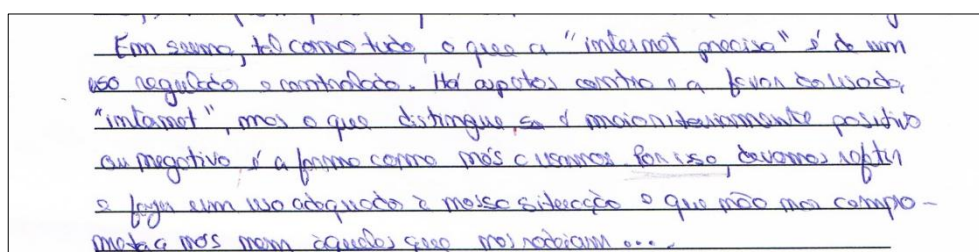 Em suma, tal como tudo, o que a "internet precisa" é de um
uso regulado e controlado. Há aspetos contra e a favor do uso da
"internet", mas o que distingue se é maioritariamente positivo
ou negativo é a forma como nós a usamos. Por isso, devemos refletir
e fazer um uso adequado à nossa situação e que não nos compro-
meta a nós nem àqueles que nos rodeiam...